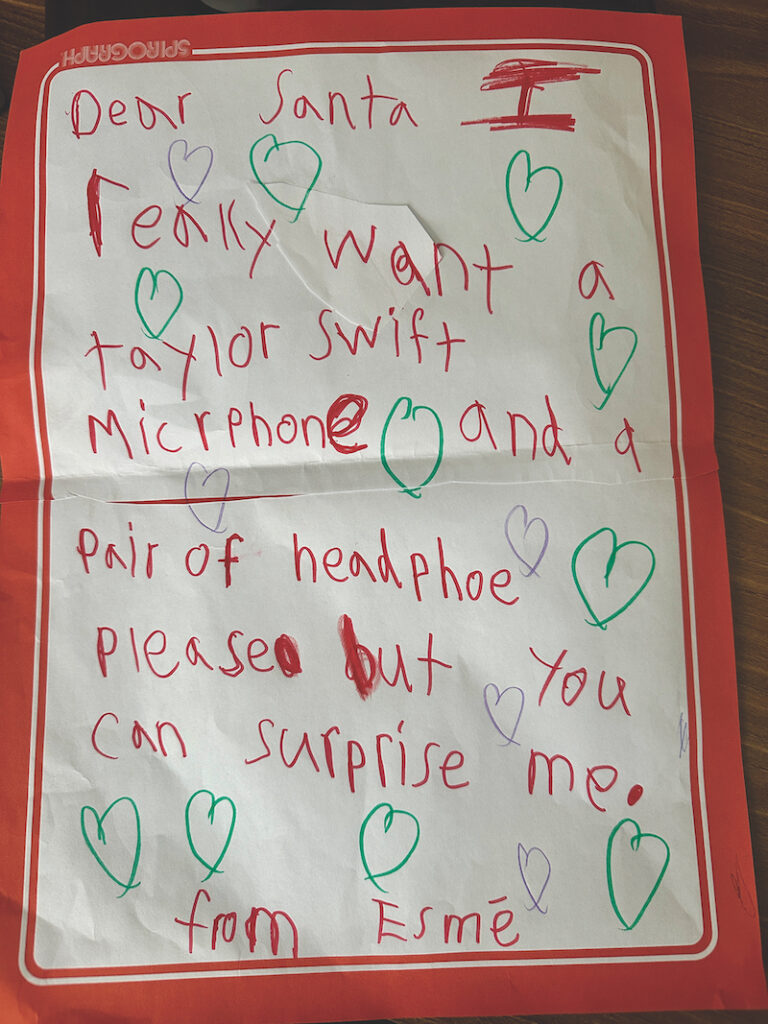 SPIROGRAPH
Dear Santa I
really want a
taylor swift
micrphone and a
pair of headphoe
please but you
can surprise me.
from Esmē